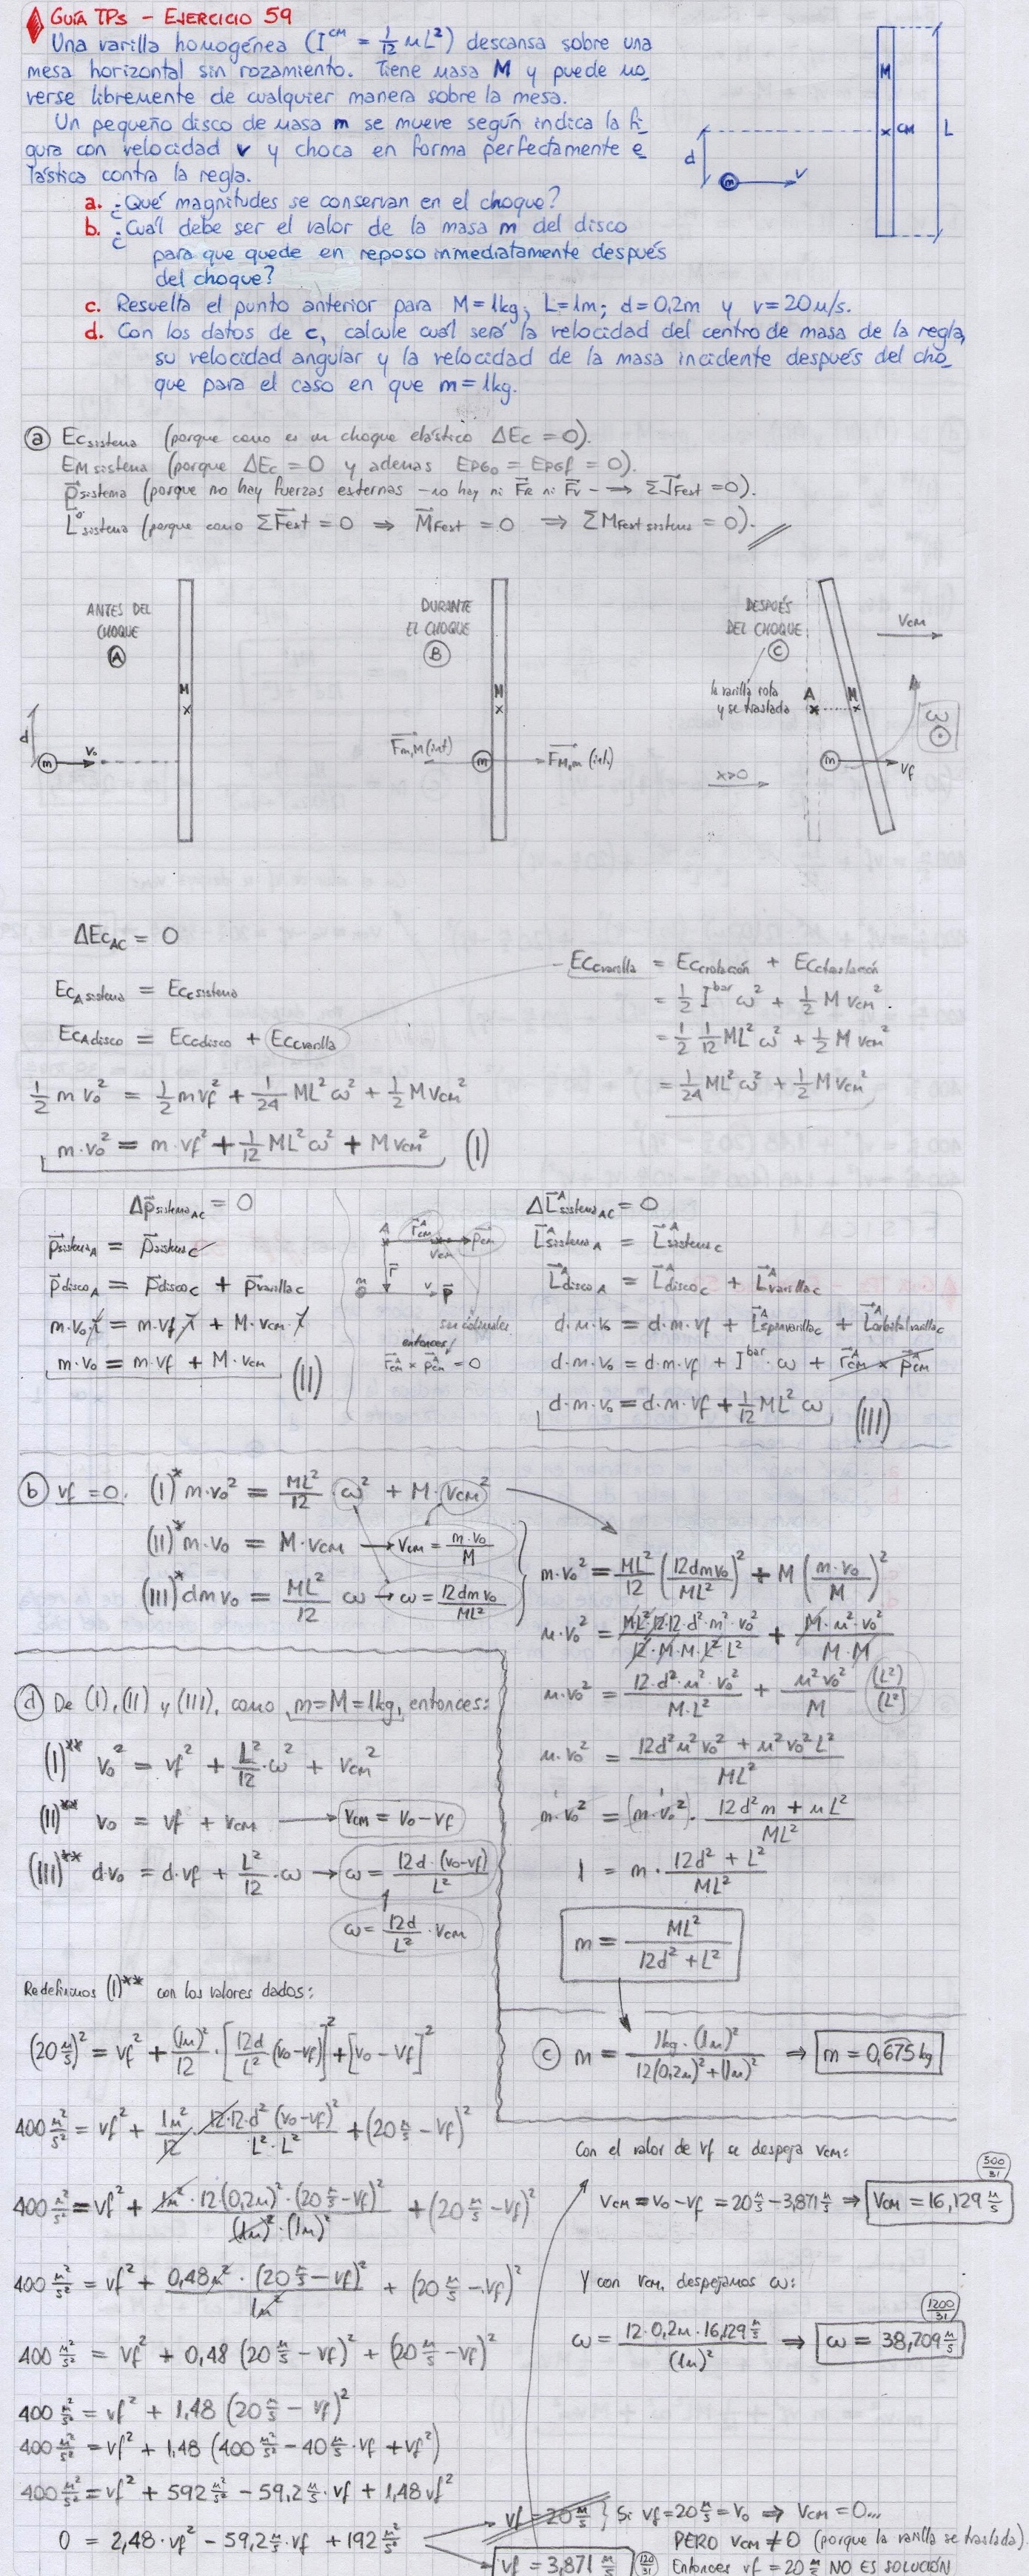 GUÍA TPs - EJERCICIO 59
Una varilla homogénea (I^CM = 1/12 ML²) descansa sobre una
mesa horizontal sin rozamiento. Tiene masa M y puede mo_
verse libremente de cualquier manera sobre la mesa.
Un pequeño disco de masa m se mueve según indica la fi_
gura con velocidad v y choca en forma perfectamente e_
lástica contra la regla.
a. ¿Qué magnitudes se conservan en el choque?
b. ¿Cuál debe ser el valor de la masa m del disco
para que quede en reposo inmediatamente después
del choque?
c. Resuelta el punto anterior para M=1kg, L=1m; d=0,2m y v=20m/s.
d. Con los datos de c, calcule cuál será la velocidad del centro de masa de la regla,
su velocidad angular y la velocidad de la masa incidente después del cho_
que para el caso en que m=1kg.
M
CM
L
d
m
v
a Ec sistema (porque como es un choque elástico ΔEc = 0).
EM sistema (porque ΔEc = 0 y además EPGo = EPGf = 0).
p⃗ sistema (porque no hay fuerzas externas - no hay ni F⃗R ni F⃗v - → ΣJ⃗Fext = 0).
L⃗° sistema (porque como ΣF⃗ext = 0 ⇒ M⃗Fext = 0 ⇒ ΣMFext sistema = 0).
ANTES DEL CHOQUE A
M
d
m
vo
DURANTE EL CHOQUE B
M
F⃗m,M (int)
m
F⃗M,m (int)
DESPUÉS DEL CHOQUE C
la varilla rota y se traslada
A
M
VCM
ω
m
vf
x>0
ΔEc AC = 0
Ec A sistema = Ec C sistema
Ec A disco = Ec C disco + Ec C varilla
1/2 m vo² = 1/2 m vf² + 1/24 ML² ω² + 1/2 M VCM²
m·vo² = m·vf² + 1/12 ML² ω² + M VCM² (I)
Ec C varilla = Ec C rotación + Ec C traslación
= 1/2 I^bar ω² + 1/2 M VCM²
= 1/2 1/12 ML² ω² + 1/2 M VCM²
= 1/24 ML² ω² + 1/2 M VCM²
Δp⃗ sistema AC = 0
p⃗ sistema A = p⃗ sistema C
p⃗ disco A = p⃗ disco C + p⃗ varilla C
m·vo x̂ = m·vf x̂ + M·VCM x̂
m·vo = m·vf + M·VCM (II)
A r⃗CM^A
VCM p⃗CM
r⃗
m v p⃗
son colineales
entonces
r⃗CM^A × p⃗CM^A = 0
ΔL⃗^A sistema AC = 0
L⃗^A sistema A = L⃗^A sistema C
L⃗^A disco A = L⃗^A disco C + L⃗^A varilla C
d·m·vo = d·m·vf + L⃗^A spin varilla C + L⃗^A orbital varilla C
d·m·vo = d·m·vf + I^bar·ω + r⃗CM^A × p⃗CM
d·m·vo = d·m·vf + 1/12 ML² ω (III)
b vf = 0. (I)* m·vo² = ML²/12 ω² + M·(VCM)²
(II)* m·vo = M·VCM → VCM = m·vo/M
(III)* dmvo = ML²/12 ω → ω = 12dmvo/ML²
m·vo² = ML²/12 (12dmvo/ML²)² + M (m·vo/M)²
m·vo² = M·L²·12·12·d²·m²·vo²/12·M·M·L²·L² + M·m²·vo²/M·M
m·vo² = 12·d²·m²·vo²/M·L² + m²vo²/M (L²)/(L²)
m·vo² = 12d²m²vo² + m²vo²L²/ML²
m·vo² = (m·vo²)· 12d²m + mL²/ML²
1 = m· 12d² + L²/ML²
m = ML²/12d² + L²
c m = 1kg·(1m)²/12(0,2m)² + (1m)² ⇒ m = 0,675kg
d De (I), (II) y (III), como m=M=1kg, entonces:
(I)** vo² = vf² + L²/12·ω² + VCM²
(II)** vo = vf + VCM → VCM = vo - vf
(III)** d·vo = d·vf + L²/12·ω → ω = 12d·(vo-vf)/L²
ω = 12d/L²·VCM
Redefinimos (I)** con los valores dados:
(20 m/s)² = vf² + (1m)²/12·[12d/L² (vo-vf)]² + [vo - vf]²
400 m²/s² = vf² + 1m²/12· 12·12·d²(vo-vf)²/L²·L² + (20 m/s - vf)²
400 m²/s² = vf² + 1m²·12(0,2m)²·(20 m/s - vf)²/(1m)²·(1m)² + (20 m/s - vf)²
400 m²/s² = vf² + 0,48m²·(20 m/s - vf)²/1m² + (20 m/s - vf)²
400 m²/s² = vf² + 0,48 (20 m/s - vf)² + (20 m/s - vf)²
400 m²/s² = vf² + 1,48 (20 m/s - vf)²
400 m²/s² = vf² + 1,48 (400 m²/s² - 40 m/s·vf + vf²)
400 m²/s² = vf² + 592 m²/s² - 59,2 m/s·vf + 1,48 vf²
0 = 2,48·vf² - 59,2 m/s·vf + 192 m²/s²
vf = 20 m/s } Si vf = 20 m/s = vo ⇒ VCM = 0...
PERO VCM ≠ 0 (porque la varilla se traslada).
vf = 3,871 m/s 120/31 Entonces vf = 20 m/s NO ES SOLUCIÓN
Con el valor de vf se despeja VCM:
VCM = vo - vf = 20 m/s - 3,871 m/s ⇒ VCM = 16,129 m/s 500/31
Y con VCM, despejamos ω:
ω = 12·0,2m·16,129 m/s/(1m)² ⇒ ω = 38,709 m/s 1200/31